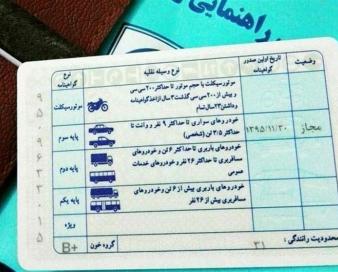 راهنمایی و
وضعیت
تاریخ اولین صدور گواهینامه
نوع وسیله نقلیه
نوع گواهینامه
موتورسیکلت با حجم موتور تا حداکثر ۲۰۰ سی سی
و بیش از ۲۰۰ سی سی گذشت ۳ سال از اخذ گواهینامه
و داشتن ۲۳ سال تمام
موتورسیکلت
خودروهای سواری تا حداکثر ۹ نفر و وانت تا
حداکثر ۳/۵ تن (شخصی)
پایه سوم
۱۳۹۵/۱۱/۳۰
مجاز
خودروهای باربری تا حداکثر ۶ تن و خودروهای
مسافربری تا حداکثر ۲۶ نفر و خودروهای خدمات
عمومی
پایه دوم
خودروهای باربری بیش از ۶ تن و خودروهای
مسافربری بیش از ۲۶ نفر
پایه یکم
ویژه
محدودیت رانندگی :
۳۱
گروه خون :
B+